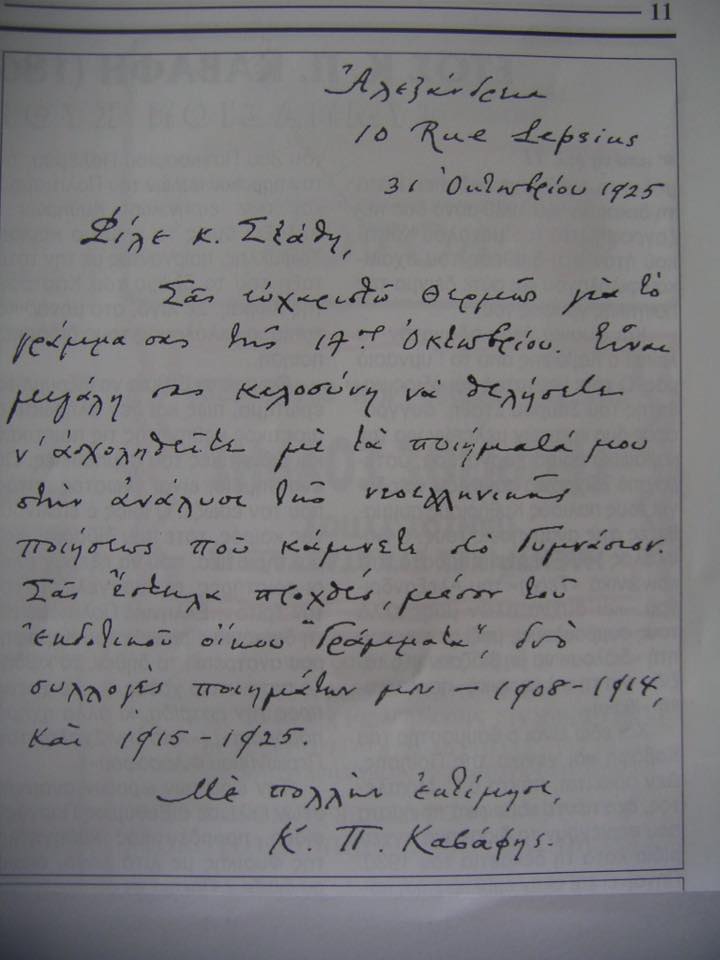 11
Ἀλεξάνδρεια
10 Rue Lepsius
31 Ὀκτωβρίου 1925
Φίλε κ. Στάθη,
Σᾶς εὐχαριστῶ θερμῶς γιὰ τὸ
γράμμα σας τῆς 17ης Ὀκτωβρίου. Εἶναι
μεγάλη σας καλοσύνη νὰ θελήσετε
ν' ἀσχοληθεῖτε μὲ τὰ ποιήματά μου
στὴν ἀνάλυσι τῆς νεοελληνικῆς
ποιήσεως ποὺ κάμνετε στὸ Γυμνάσιον.
Σᾶς ἔστειλα προχθές, μέσον τοῦ
Ἐκδοτικοῦ οἴκου "Γράμματα", δυὸ
συλλογὲς ποιημάτων μου — 1908-1914,
καὶ 1915-1925.
Μὲ πολλὴν ἐκτίμησι,
Κ. Π. Καβάφης.